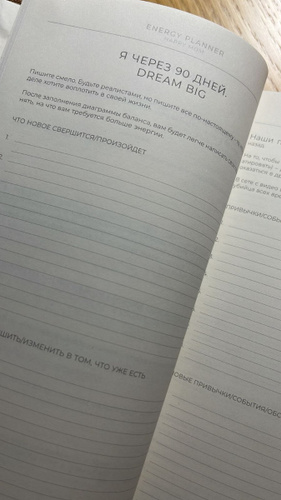 ENERGY PLANNER
HAPPY MOM
Я ЧЕРЕЗ 90 ДНЕЙ.
DREAM BIG
Пишите смело. Будьте реалистами, но пишите все по-настоящему
деле хотите воплотить в своей жизни.
После заполнения диаграммы баланса, вам будет легче написать
нять, на что вам требуется больше энергии.
ЧТО НОВОЕ СВЕРШИТСЯ/ПРОИЗОЙДЕТ
1
2
ШИТЬ/ИЗМЕНИТЬ В ТОМ, ЧТО УЖЕ ЕСТЬ
Наши
на то, чтобы
ОВЫЕ ПРИВЫЧКИ/СОБЫТИЯ/ОБС